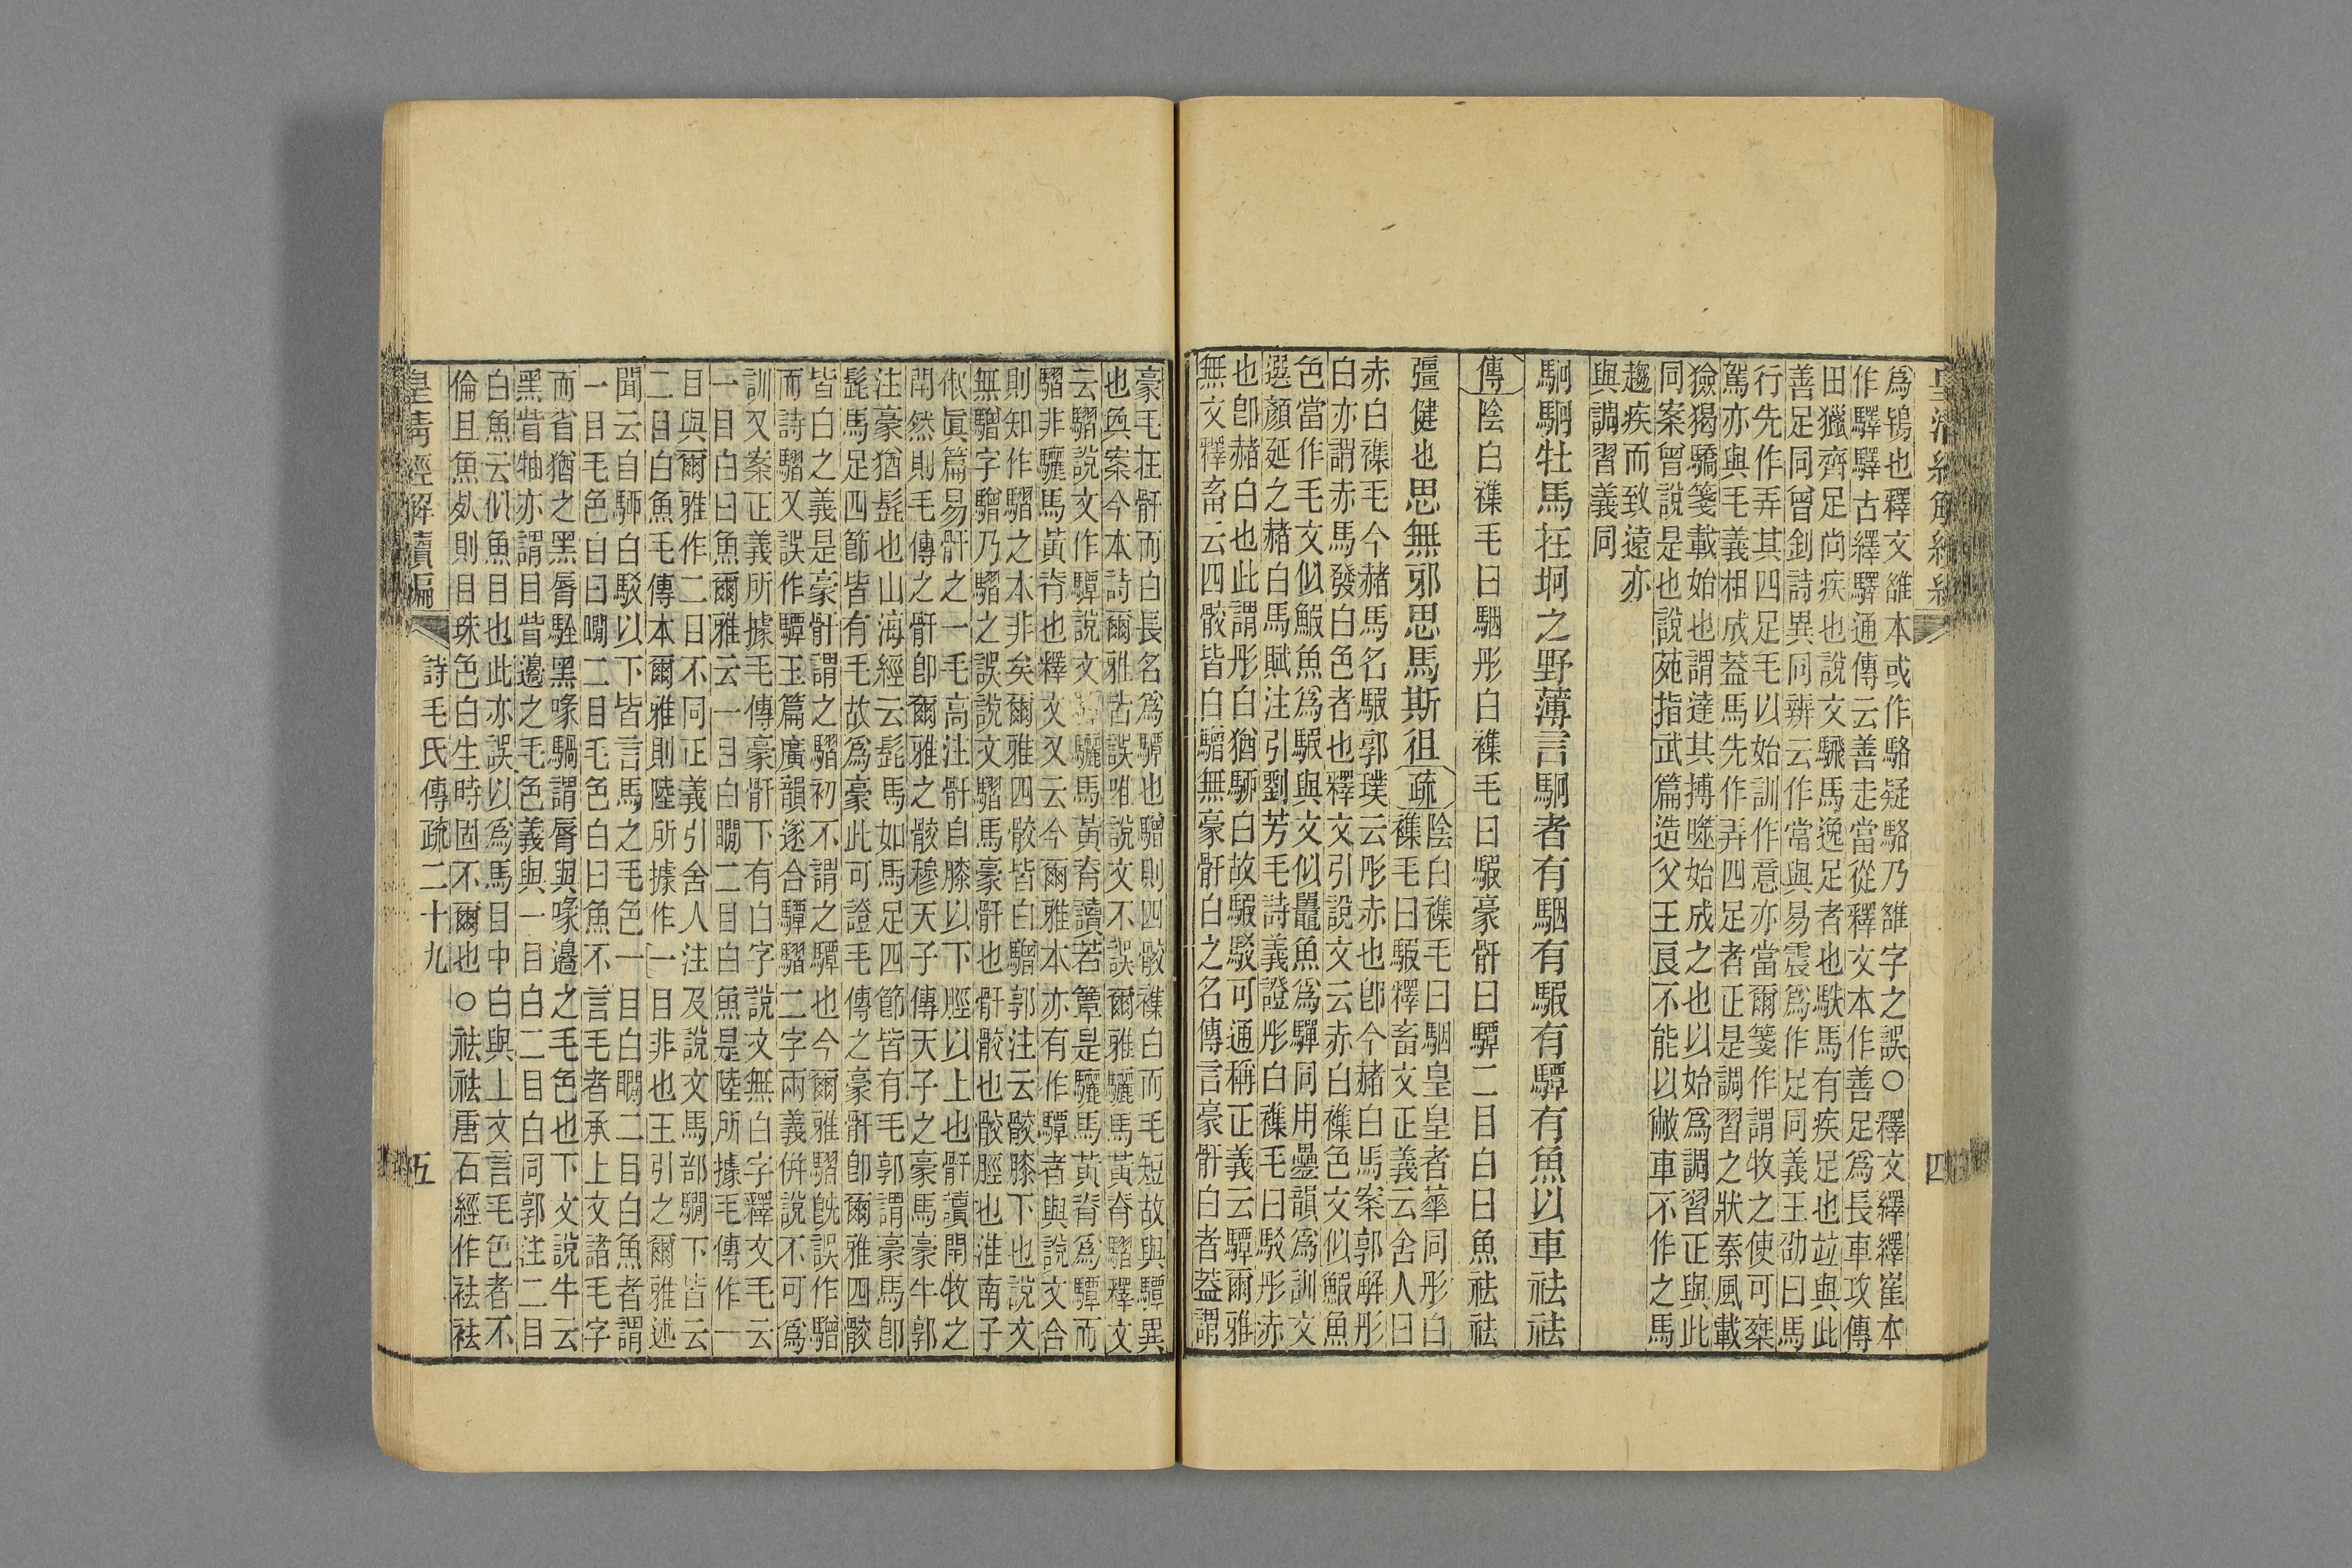 皇清經解續編
四
爲鴇也釋文雒本或作駱疑駱乃雒字之誤○釋文繹繹崔本
作驛驛古繹驛通傳云善走當從釋文本作善足爲長車攻傳
田獵齊足尙疾也說文騛馬逸足者也馱馬有疾足也竝與此
善足同曾釗詩異同辨云作當與易震爲作足同義王劭曰馬
行先作弄其四足毛以始訓作意亦當爾箋作謂牧之使可椉
駕亦與毛義相成葢馬先作弄四足者正是調習之狀秦風載
獫猲驕箋載始也謂達其搏噬始成之也以始爲調習正與此
同案曾說是也說苑指武篇造父王良不能以敝車不作之馬
趨疾而致遠亦
與調習義同
駉駉牡馬在坰之野薄言駉者有駰有騢有驔有魚以車祛祛
傳陰白襍毛曰駰彤白襍毛曰騢豪骭曰驔二目白曰魚祛祛
彊健也思無邪思馬斯徂疏陰白襍毛曰駰皇皇者華同彤白
襍毛曰騢釋畜文正義云舍人曰
赤白襍毛今赭馬名騢郭璞云彤赤也卽今赭白馬案郭解彤
白亦謂赤馬發白色者也釋文引說文云赤白襍色文似鰕魚
色當作毛文似鰕魚爲騢與文似鼉魚爲驒同用疊韻爲訓文
選顏延之赭白馬賦注引劉芳毛詩義證彤白襍毛曰駁彤赤
也卽赭白也此謂彤白猶駂白故騢駁可通稱正義云驔爾雅
無文釋畜云四骹皆白驓無豪骭白之名傳言豪骭白者葢謂
豪毛在骭而白長名爲驔也驓則四骹襍白而毛短故與驔異
也奐案今本詩爾雅皆誤唯說文不誤爾雅驪馬黃脊騽釋文
云騽說文作驔說文驔驪馬黃脊讀若簟是驪馬黃脊爲驔而
騽非驪馬黃脊也釋文又云今爾雅本亦有作驔者與說文合
則知作騽之本非矣爾雅四骹皆白驓郭注云骹膝下也說文
無驓字驓乃騽之誤說文騽馬豪骭也骭骹也骹脛也淮南子
俶眞篇易骭之一毛高注骭自膝以下脛以上也骭讀閈牧之
閈然則毛傳之骭卽爾雅之骹穆天子傳天子之豪馬豪牛郭
注豪猶髭也山海經云髭馬如馬足四節皆有毛郭謂豪馬卽
髭馬足四節皆有毛故爲豪此可證毛傳之豪骭卽爾雅四骹
皆白之義是豪骭謂之騽初不謂之驔也今爾雅騽旣誤作驓
而詩騽又誤作驔玉篇廣韻遂合驔騽二字兩義倂說不可爲
訓又案正義所據毛傳豪骭下有白字說文無白字釋文毛云
一目白曰魚爾雅云一目白瞷二目白魚是陸所據毛傳作一
目與爾雅作二目不同正義引舍人注及說文馬部驓下皆云
二目白魚毛傳本爾雅則陸所據作一目非也王引之爾雅述
聞云自駂白駁以下皆言馬之毛色一目白瞷二目白魚者謂
一目毛色白曰瞷二目毛色白曰魚不言毛者承上文諸毛字
而省猶之黑脣駩黑喙騧謂脣與喙邊之毛色也下文說牛云
黑眥牰亦謂目眥邊之毛色義與一目白二目白同郭注二目
白魚云似魚目也此亦誤以爲馬目中白與上文言毛色者不
倫且魚死則目珠色白生時固不爾也○祛祛唐石經作祛祛
皇清經解續編
詩毛氏傳疏二十九
五